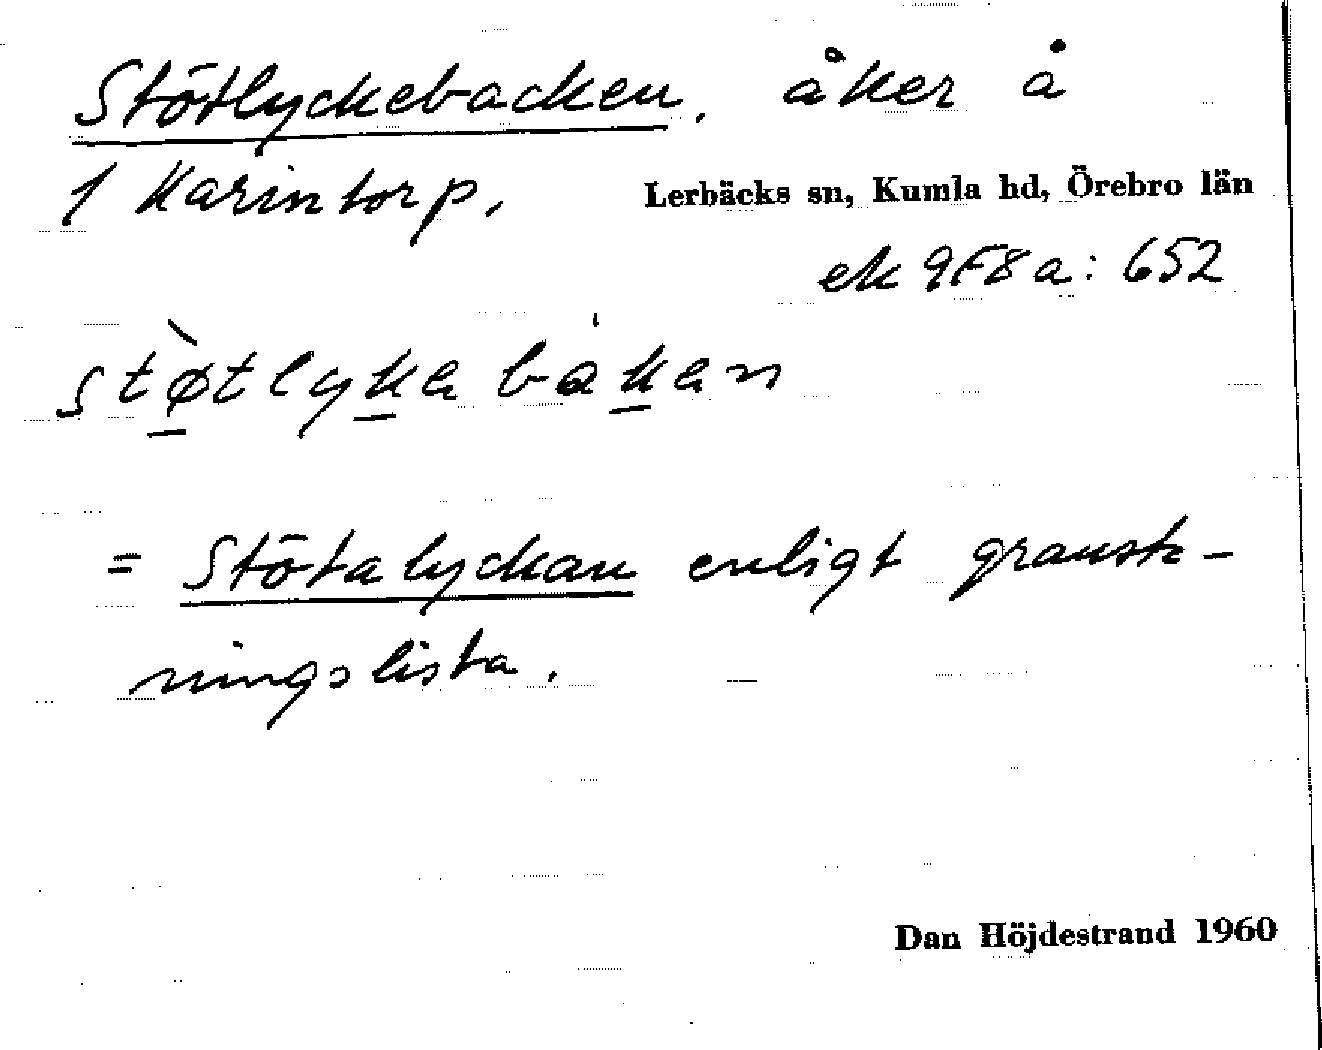 Stötlyckebacken, åker å
1 Karintorp, Lerbäcks sn, Kumla hd, Örebro län
ek 9F8a: 652
stø̀tlykabákan
= Stötalyckan enligt gransk-
ningslista.
Dan Höjdestrand 1960